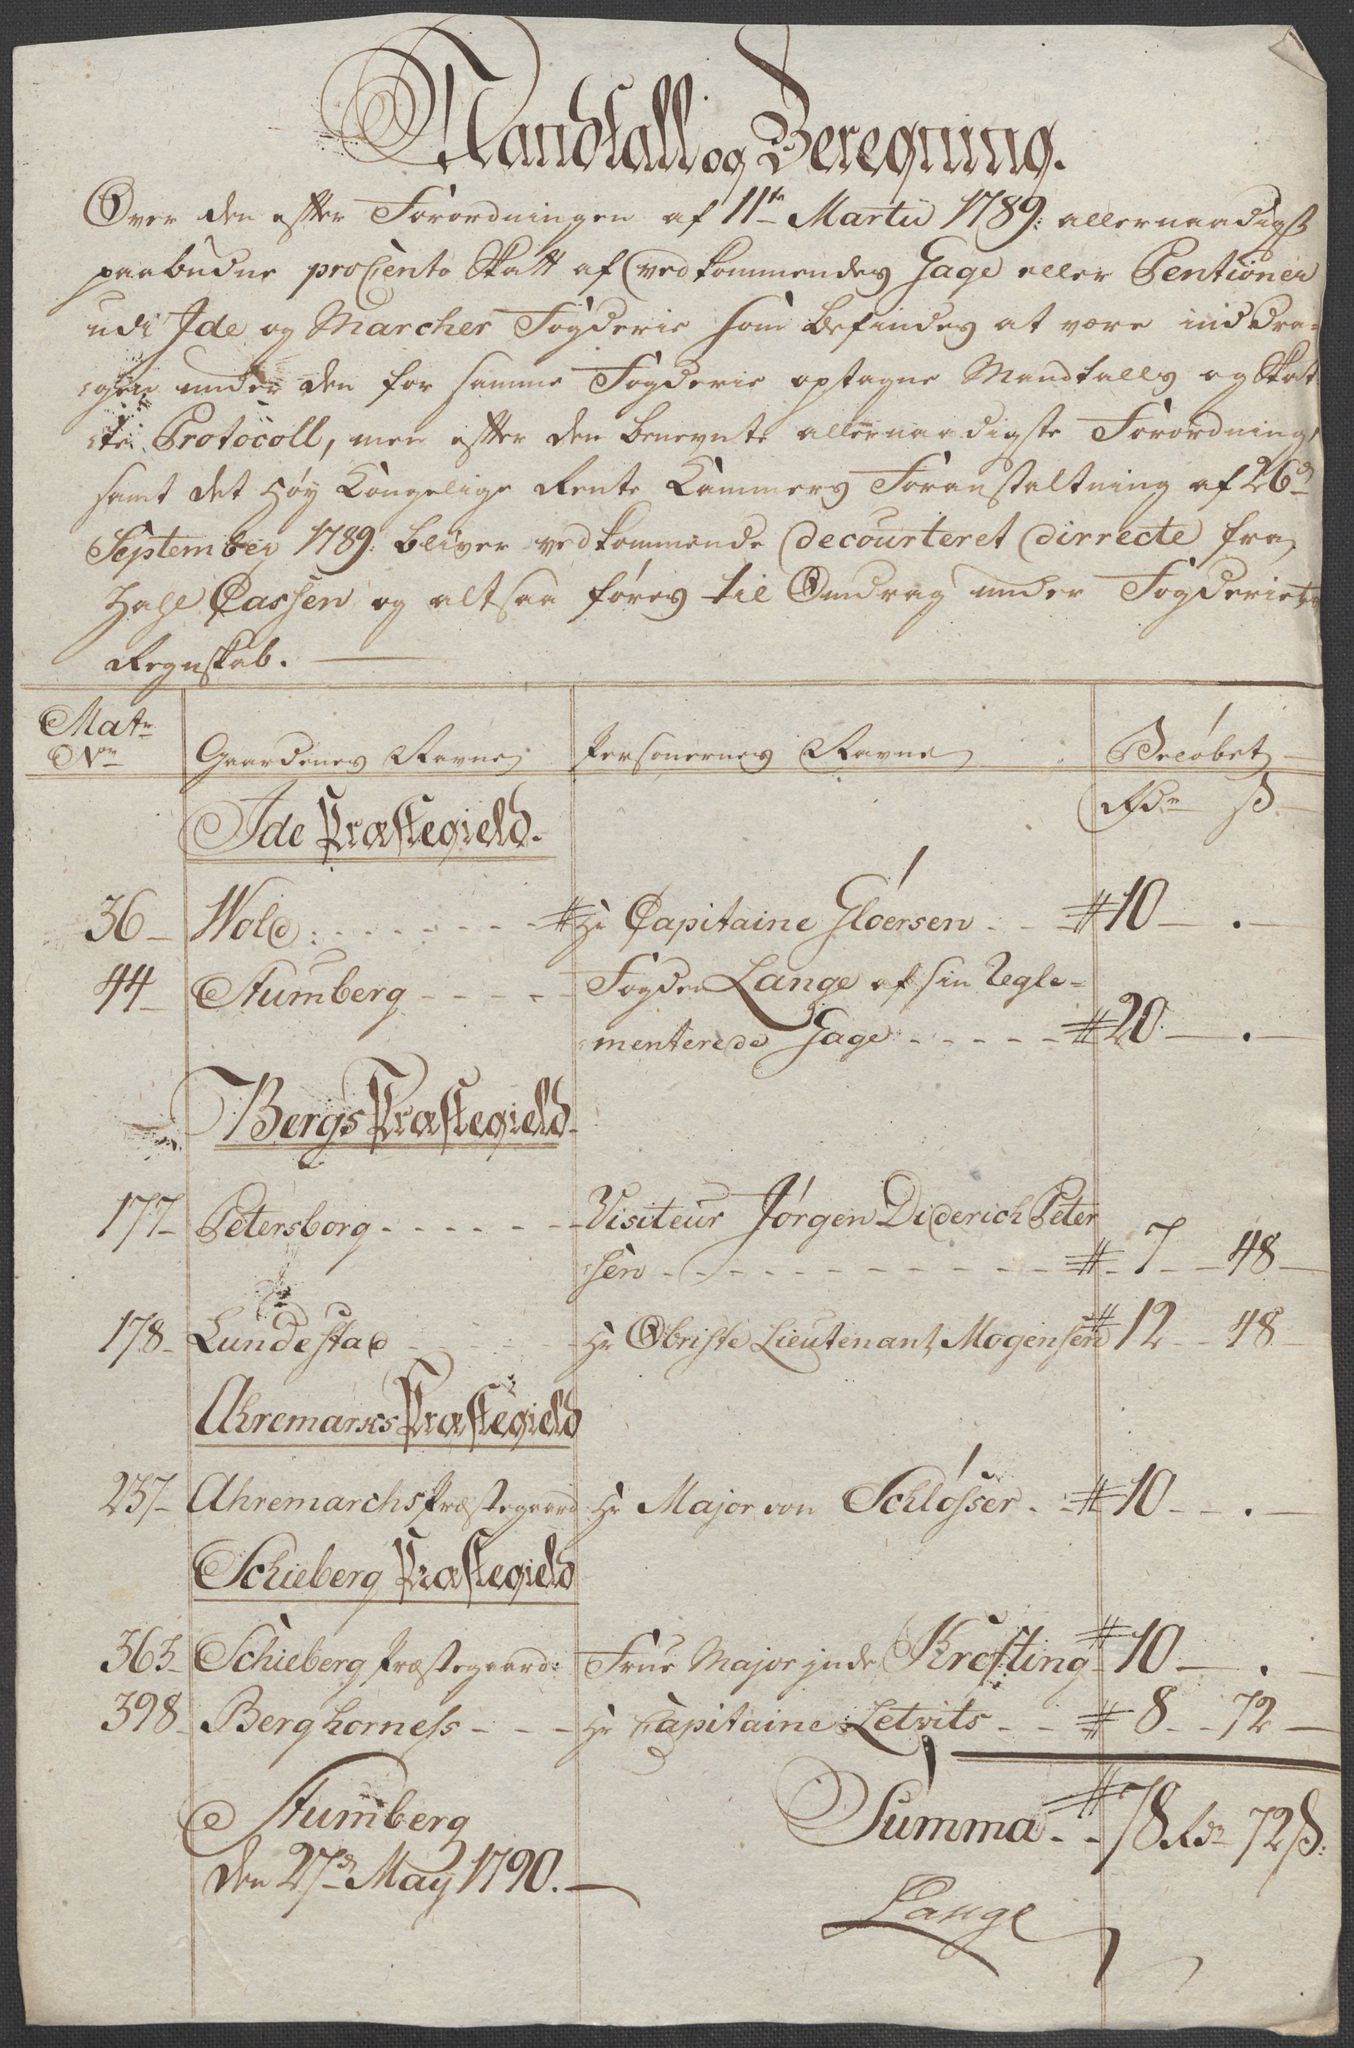 Mandtall og Beregning.
Over den efter Forordningen af 11te Martii 1789: allernaadigst
paabudne proCento Skatt af vedkommendes Gage eller Pentioner
udi Ide og Marcher Fogderie som befindes at være inddra-
gen under den for samme Fogderie optagne Mandtalls og Skat-
te Protocoll, men efter den benevnte allernaadigste Forordning,
samt det Høy Kongelige Rente Kammers Foranstaltning af 26de
September 1789: bliver vedkommende decourteret dirrecte fra
Cassen og altsaa føres til Omdrag under Fogderiets
Regnskab.
Matr Nr Gaardenes Navne Personernes Navne Beløbet
Rdr ß
Ide Præstegield.
36 Wold Hr Capitaine Gløersen 10 .
44 Stumberg Fogden Lange af sin Regle-
menterede Gage 20 .
Bergs Præstegield
177 Petersborg Visiteur Jørgen Diderich Peter
sen 7 48
178 Lundestad Hr Obriste Lieutenant Mogensen 12 48
Ahremarks Præstegield
237 Ahremarchs Præstegaard Hr Major von Schløsser 10 .
Schieberg Præstegield
363 Schieberg Præstegaard: Frue Majorinde Krefting 10 .
398 Berg horness Hr Capitaine Letvits 8 72
Summa 78 Rdr 72 ß:
Stumberg
den 27de May 1790.
Lange